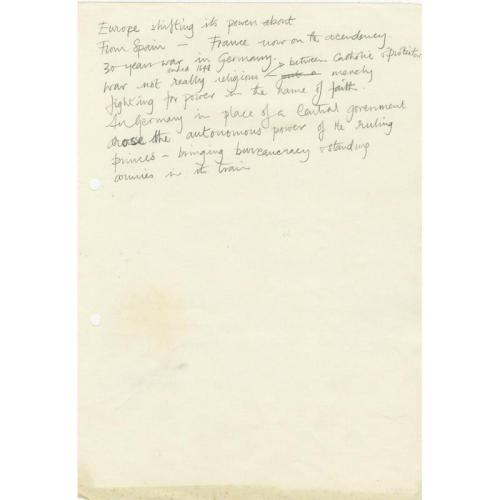 Europe shifting its power about
From Spain — France now on the acendency.
30 years war in Germany. > between Catholic & Protestan
ended 1648
war not really religious < merely
fighting for power in the name of faith.
In Germany in place of a Central government
arose the autonomous power of the ruling
princes — bringing bureaucracy & standing
armies in its train